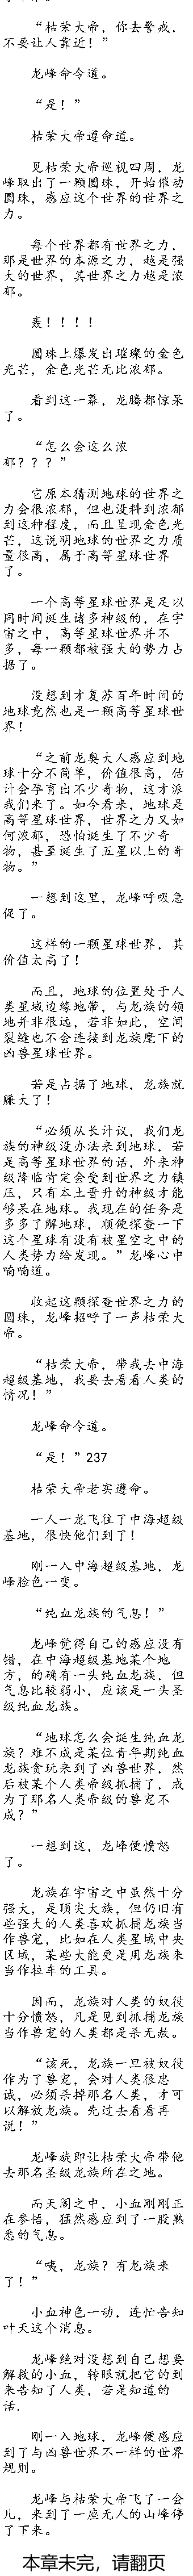 “枯荣大帝，你去警戒，
不要让人靠近！”
龙峰命令道。
“是！”
枯荣大帝遵命道。
见枯荣大帝巡视四周，龙
峰取出了一颗圆珠，开始催动
圆珠，感应这个世界的世界之
力。
每个世界都有世界之力，
那是世界的本源之力，越是强
大的世界，其世界之力越是浓
郁。
轰！！！！
圆珠上爆发出璀璨的金色
光芒，金色光芒无比浓郁。
看到这一幕，龙腾都惊呆
了。
“怎么会这么浓
郁？？？”
它原本猜测地球的世界之
力会很浓郁，但也没料到浓郁
到这种程度，而且呈现金色光
芒，这说明地球的世界之力质
量很高，属于高等星球世界
了。
一个高等星球世界是足以
同时间诞生诸多神级的，在宇
宙之中，高等星球世界并不
多，每一颗都被强大的势力占
据了。
没想到才复苏百年时间的
地球竟然也是一颗高等星球世
界！
“之前龙奥大人感应到地
球十分不简单，价值很高，估
计会孕育出不少奇物，这才派
我们来了。如今看来，地球是
高等星球世界，世界之力又如
何浓郁，恐怕诞生了不少奇
物，甚至诞生了五星以上的奇
物。”
一想到这里，龙峰呼吸急
促了。
这样的一颗星球世界，其
价值太高了！
而且，地球的位置处于人
类星域边缘地带，与龙族的领
地并非很远，若非如此，空间
裂缝也不会连接到龙族麾下的
凶兽星球世界。
若是占据了地球，龙族就
赚大了！
“必须从长计议，我们龙
族的神级没办法来到地球，若
是高等星球世界的话，外来神
级降临肯定会受到世界之力镇
压，只有本土晋升的神级才能
够呆在地球。我现在的任务是
多多了解地球，顺便探查一下
这个星球有没有被星空之中的
人类势力给发现。”龙峰心中
喃喃道。
收起这颗探查世界之力的
圆珠，龙峰招呼了一声枯荣大
帝。
“枯荣大帝，带我去中海
超级基地，我要去看看人类的
情况！”
龙峰命令道。
“是！”237
枯荣大帝老实遵命。
一人一龙飞往了中海超级
基地，很快他们到了！
刚一入中海超级基地，龙
峰脸色一变。
“纯血龙族的气息！”
龙峰觉得自己的感应没有
错，在中海超级基地某个地
方，的确有一头纯血龙族，但
气息比较弱小，应该是一头圣
级纯血龙族。
“地球怎么会诞生纯血龙
族？难不成是某位青年期纯血
龙族贪玩来到了凶兽世界，然
后被某个人类帝级抓捕了，成
为了那名人类帝级的兽宠不
成？”
一想到这，龙峰便愤怒
了。
龙族在宇宙之中虽然十分
强大，是顶尖大族，但仍旧有
些强大的人类喜欢抓捕龙族当
作兽宠，比如在人类星域中央
区域，某些大能更是用龙族来
当作拉车的工具。
因而，龙族对人类的奴役
十分愤怒，凡是见到抓捕龙族
当作兽宠的人类都是杀无赦。
“该死，龙族一旦被奴役
作为了兽宠，会对人类很忠
诚，必须杀掉那名人类，才可
以解放龙族。先过去看看再
说！”
龙峰旋即让枯荣大帝带他
去那名圣级龙族所在之地。
而天阁之中，小血刚刚正
在参悟，猛然感应到了一股熟
悉的气息。
“咦，龙族？有龙族来
了！”
小血神色一动，连忙告知
叶天这个消息。
龙峰绝对没想到自己想要
解救的小血，转眼就把它的到
来告知了人类，若是知道的
话.
刚一入地球，龙峰便感应
到了与凶兽世界不一样的世界
规则。
龙峰与枯荣大帝飞了一会
儿，来到了一座无人的山峰停
了下来。
本章未完，请翻页